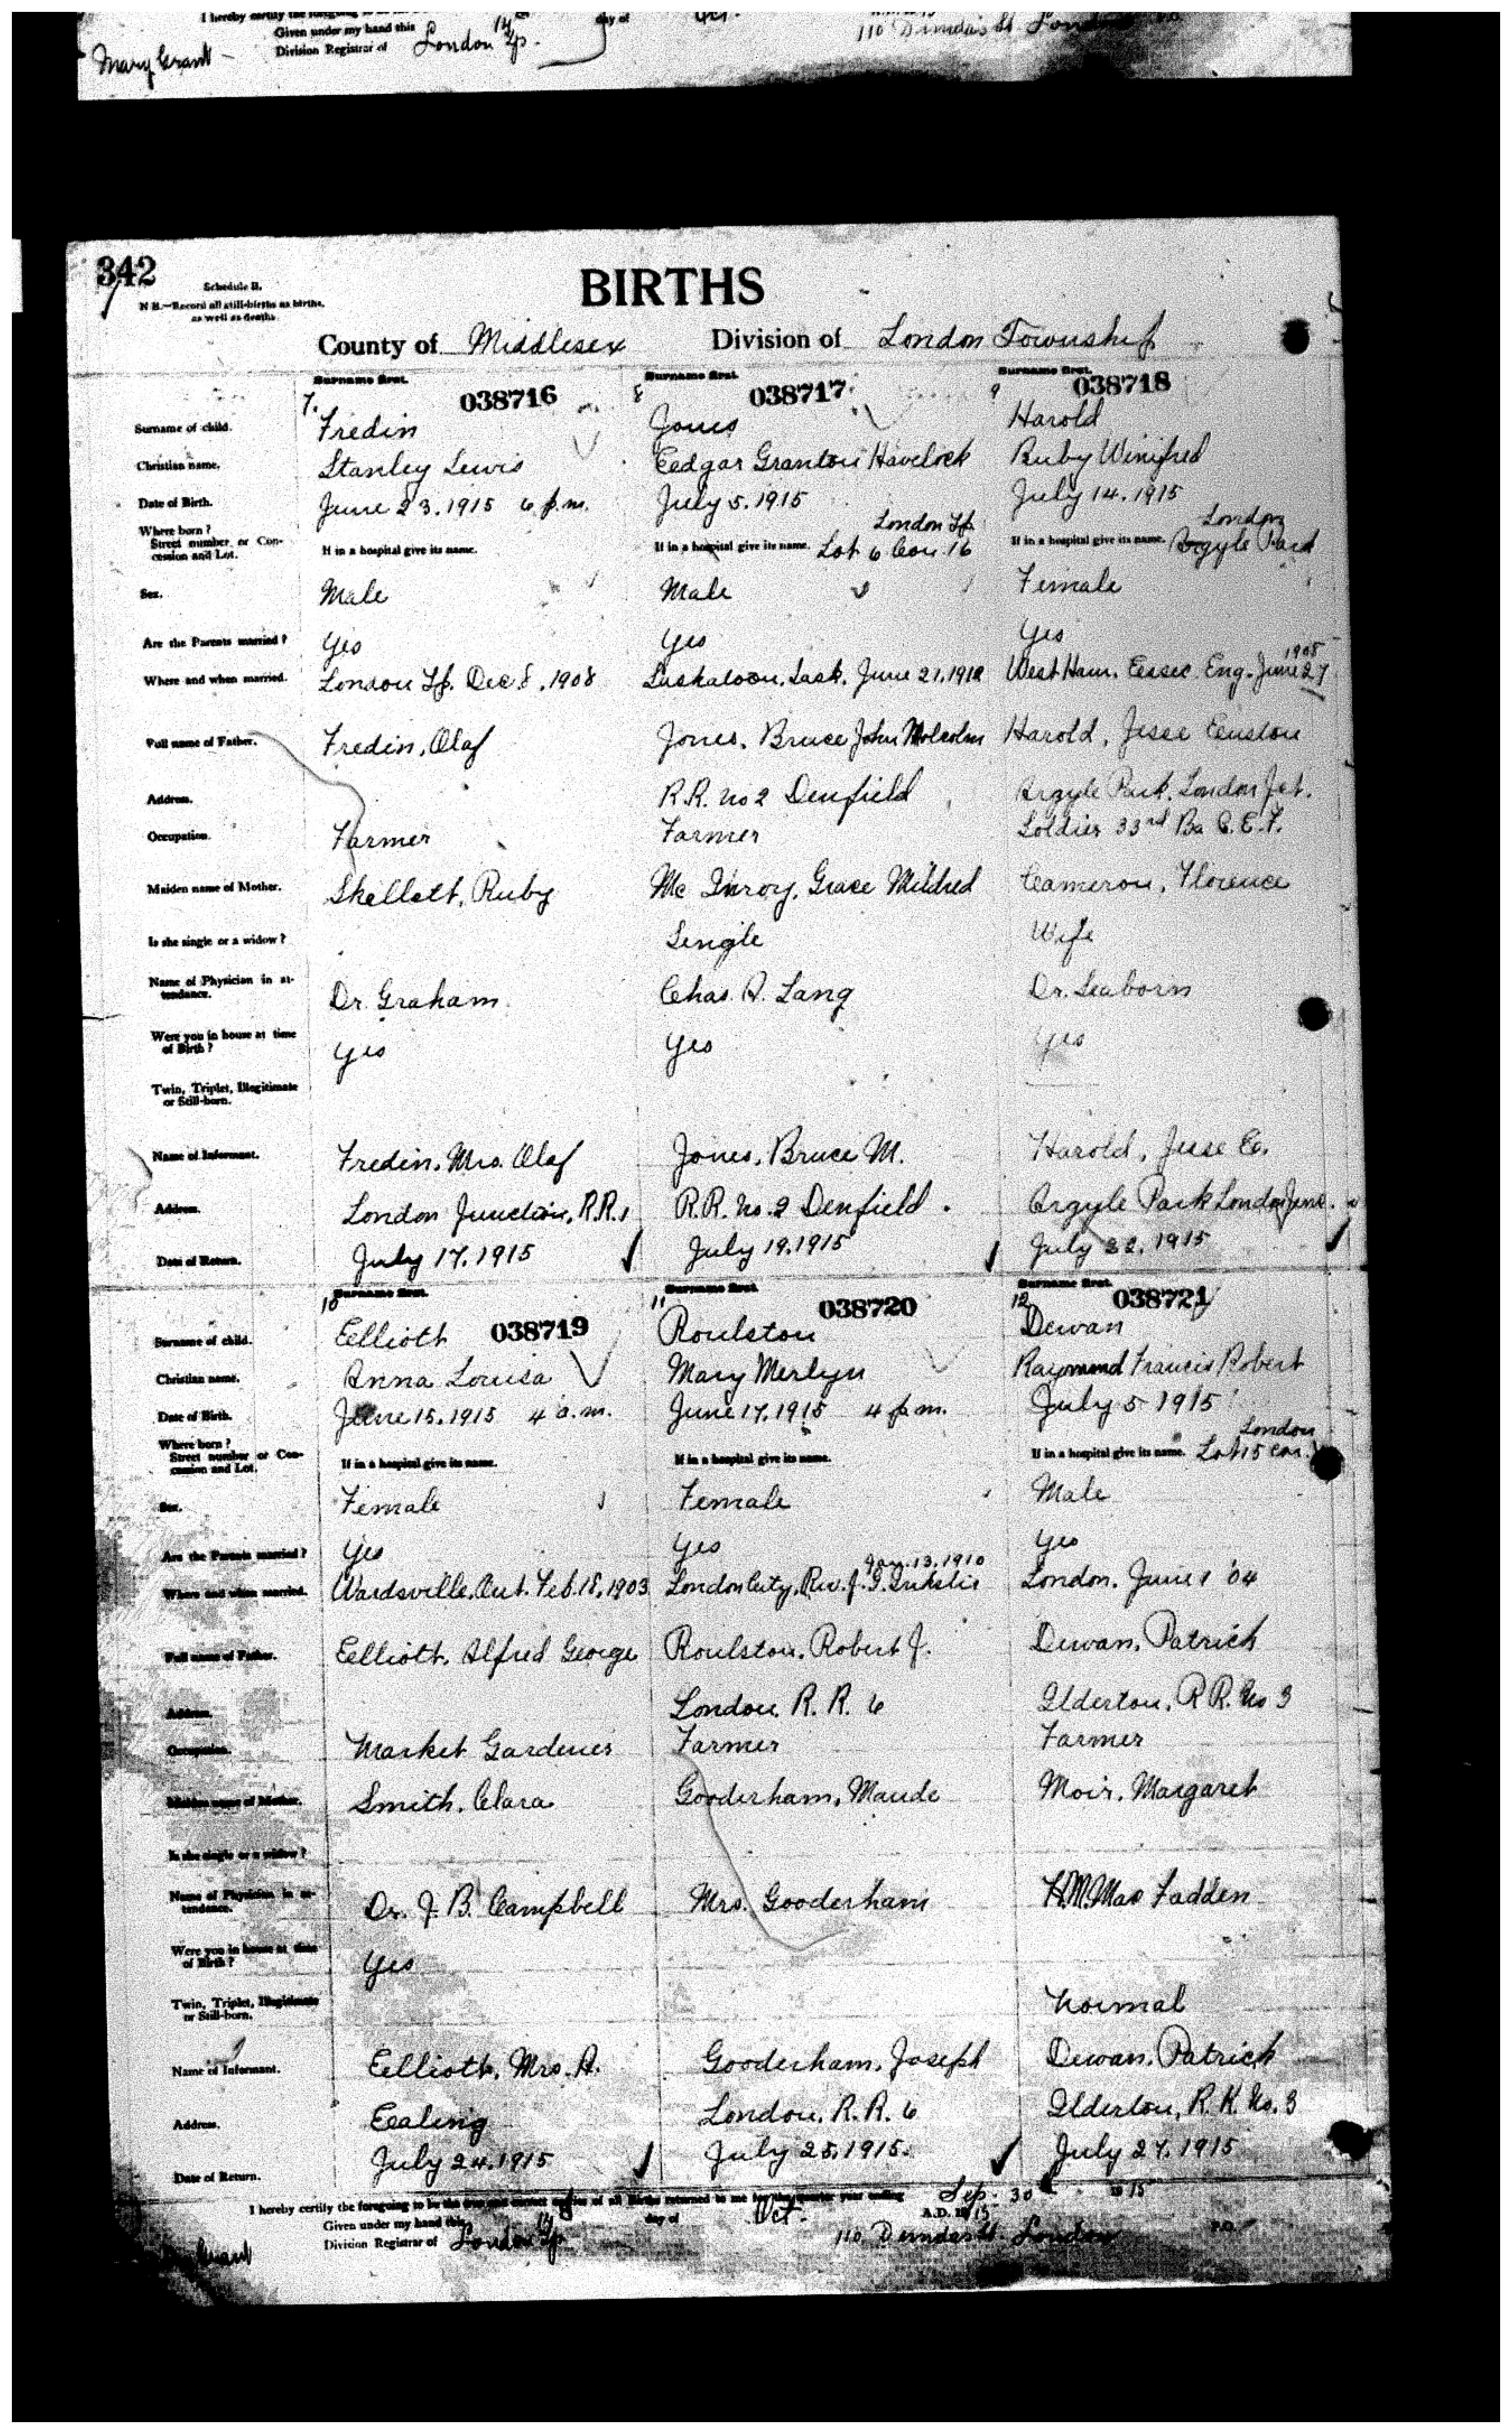 I hereby certify the foregoing
Given under my hand this 14th day of Oct.
Mary Grant
Division Registrar of London Tp.
110 Dundas St. London P.O.
342
Schedule B.
N.B.—Record all still-births as births,
as well as deaths.
BIRTHS
County of Middlesex Division of London Township
Surname first. Surname first. Surname first.
7. 038716 8 038717 9 038718
Surname of child. Fredin Jones Harold
Christian name. Stanley Lewis Eedgar Granton Havelock Ruby Winifred
Date of Birth. June 23, 1915 6 p.m. July 5, 1915 July 14, 1915
Where born? London Tp. London
Street number or Concession and Lot. If in a hospital give its name. If in a hospital give its name. Lot 6 Con. 16 If in a hospital give its name. Argyle Park
Sex. Male Male Female
Are the Parents married? Yes Yes Yes
Where and when married. London Tp. Dec. 8, 1908 Saskatoon, Sask. June 21, 1912 West Ham. Essec. Eng. June 27 1908
Full name of Father. Fredin, Olaf Jones, Bruce John Molcolm Harold, Jesse Eenston
Address. R.R. No 2 Denfield Argyle Park, London Jct.
Occupation. Farmer Farmer Soldier 33rd Ba C.E.F.
Maiden name of Mother. Skellett, Ruby Mc Inroy, Grace Mildred Cameron, Florence
Is she single or a widow? Single Wife
Name of Physician in attendance. Dr. Graham Chas. A. Lang Dr. Seaborn
Were you in house at time of Birth? Yes Yes Yes
Twin, Triplet, Illegitimate
or Still-born.
Name of Informant. Fredin, Mrs. Olaf Jones, Bruce M. Harold, Jesse E.
Address. London Junction, R.R. 1 R.R. No. 2 Denfield. Argyle Park London Junc.
Date of Return. July 17, 1915 July 19, 1915 July 22, 1915
Surname first. Surname first. Surname first.
10 038719 11 038720 12 038721
Surname of child. Eelliott Roulston Dewan
Christian name. Anna Louisa Mary Merlyn Raymond Francis Robert
Date of Birth. June 15, 1915 4 a.m. June 17, 1915 4 p.m. July 5 1915
Where born? London
Street number or Concession and Lot. If in a hospital give its name. If in a hospital give its name. If in a hospital give its name. Lot 15 Con.
Sex. Female Female Male
Are the Parents married? Yes Yes Yes
Where and when married. Wardsville, Ont. Feb. 18, 1903 London City, Rev. J. G. Inkster Jan. 13, 1910 London, June 1 '04
Full name of Father. Eelliott, Alfred George Roulston, Robert J. Dewan, Patrick
Address. London, R. R. 6 Ilderton, R R. No 3
Occupation. Market Gardener Farmer Farmer
Maiden name of Mother. Smith, Clara Gooderham, Maude Moir, Margaret
Is she single or a widow?
Name of Physician in attendance. Dr. J. B. Campbell Mrs. Gooderham H.M. Mac Fadden
Were you in house at time of Birth? Yes
Twin, Triplet, Illegitimate
or Still-born. Normal
Name of Informant. Eelliott, Mrs. A. Gooderham, Joseph Dewan, Patrick
Address. Eealing London, R.R. 6 Ilderton, R.R. No. 3
Date of Return. July 24, 1915 July 25, 1915. July 27, 1915
I hereby certify the foregoing to be the true and correct copies of all Births returned to me for the quarter year ending Sep. 30th 1915
Given under my hand this 14 day of Oct. A.D. 1915
Division Registrar of London Tp. 110 Dundas St. London P.O.
Grant